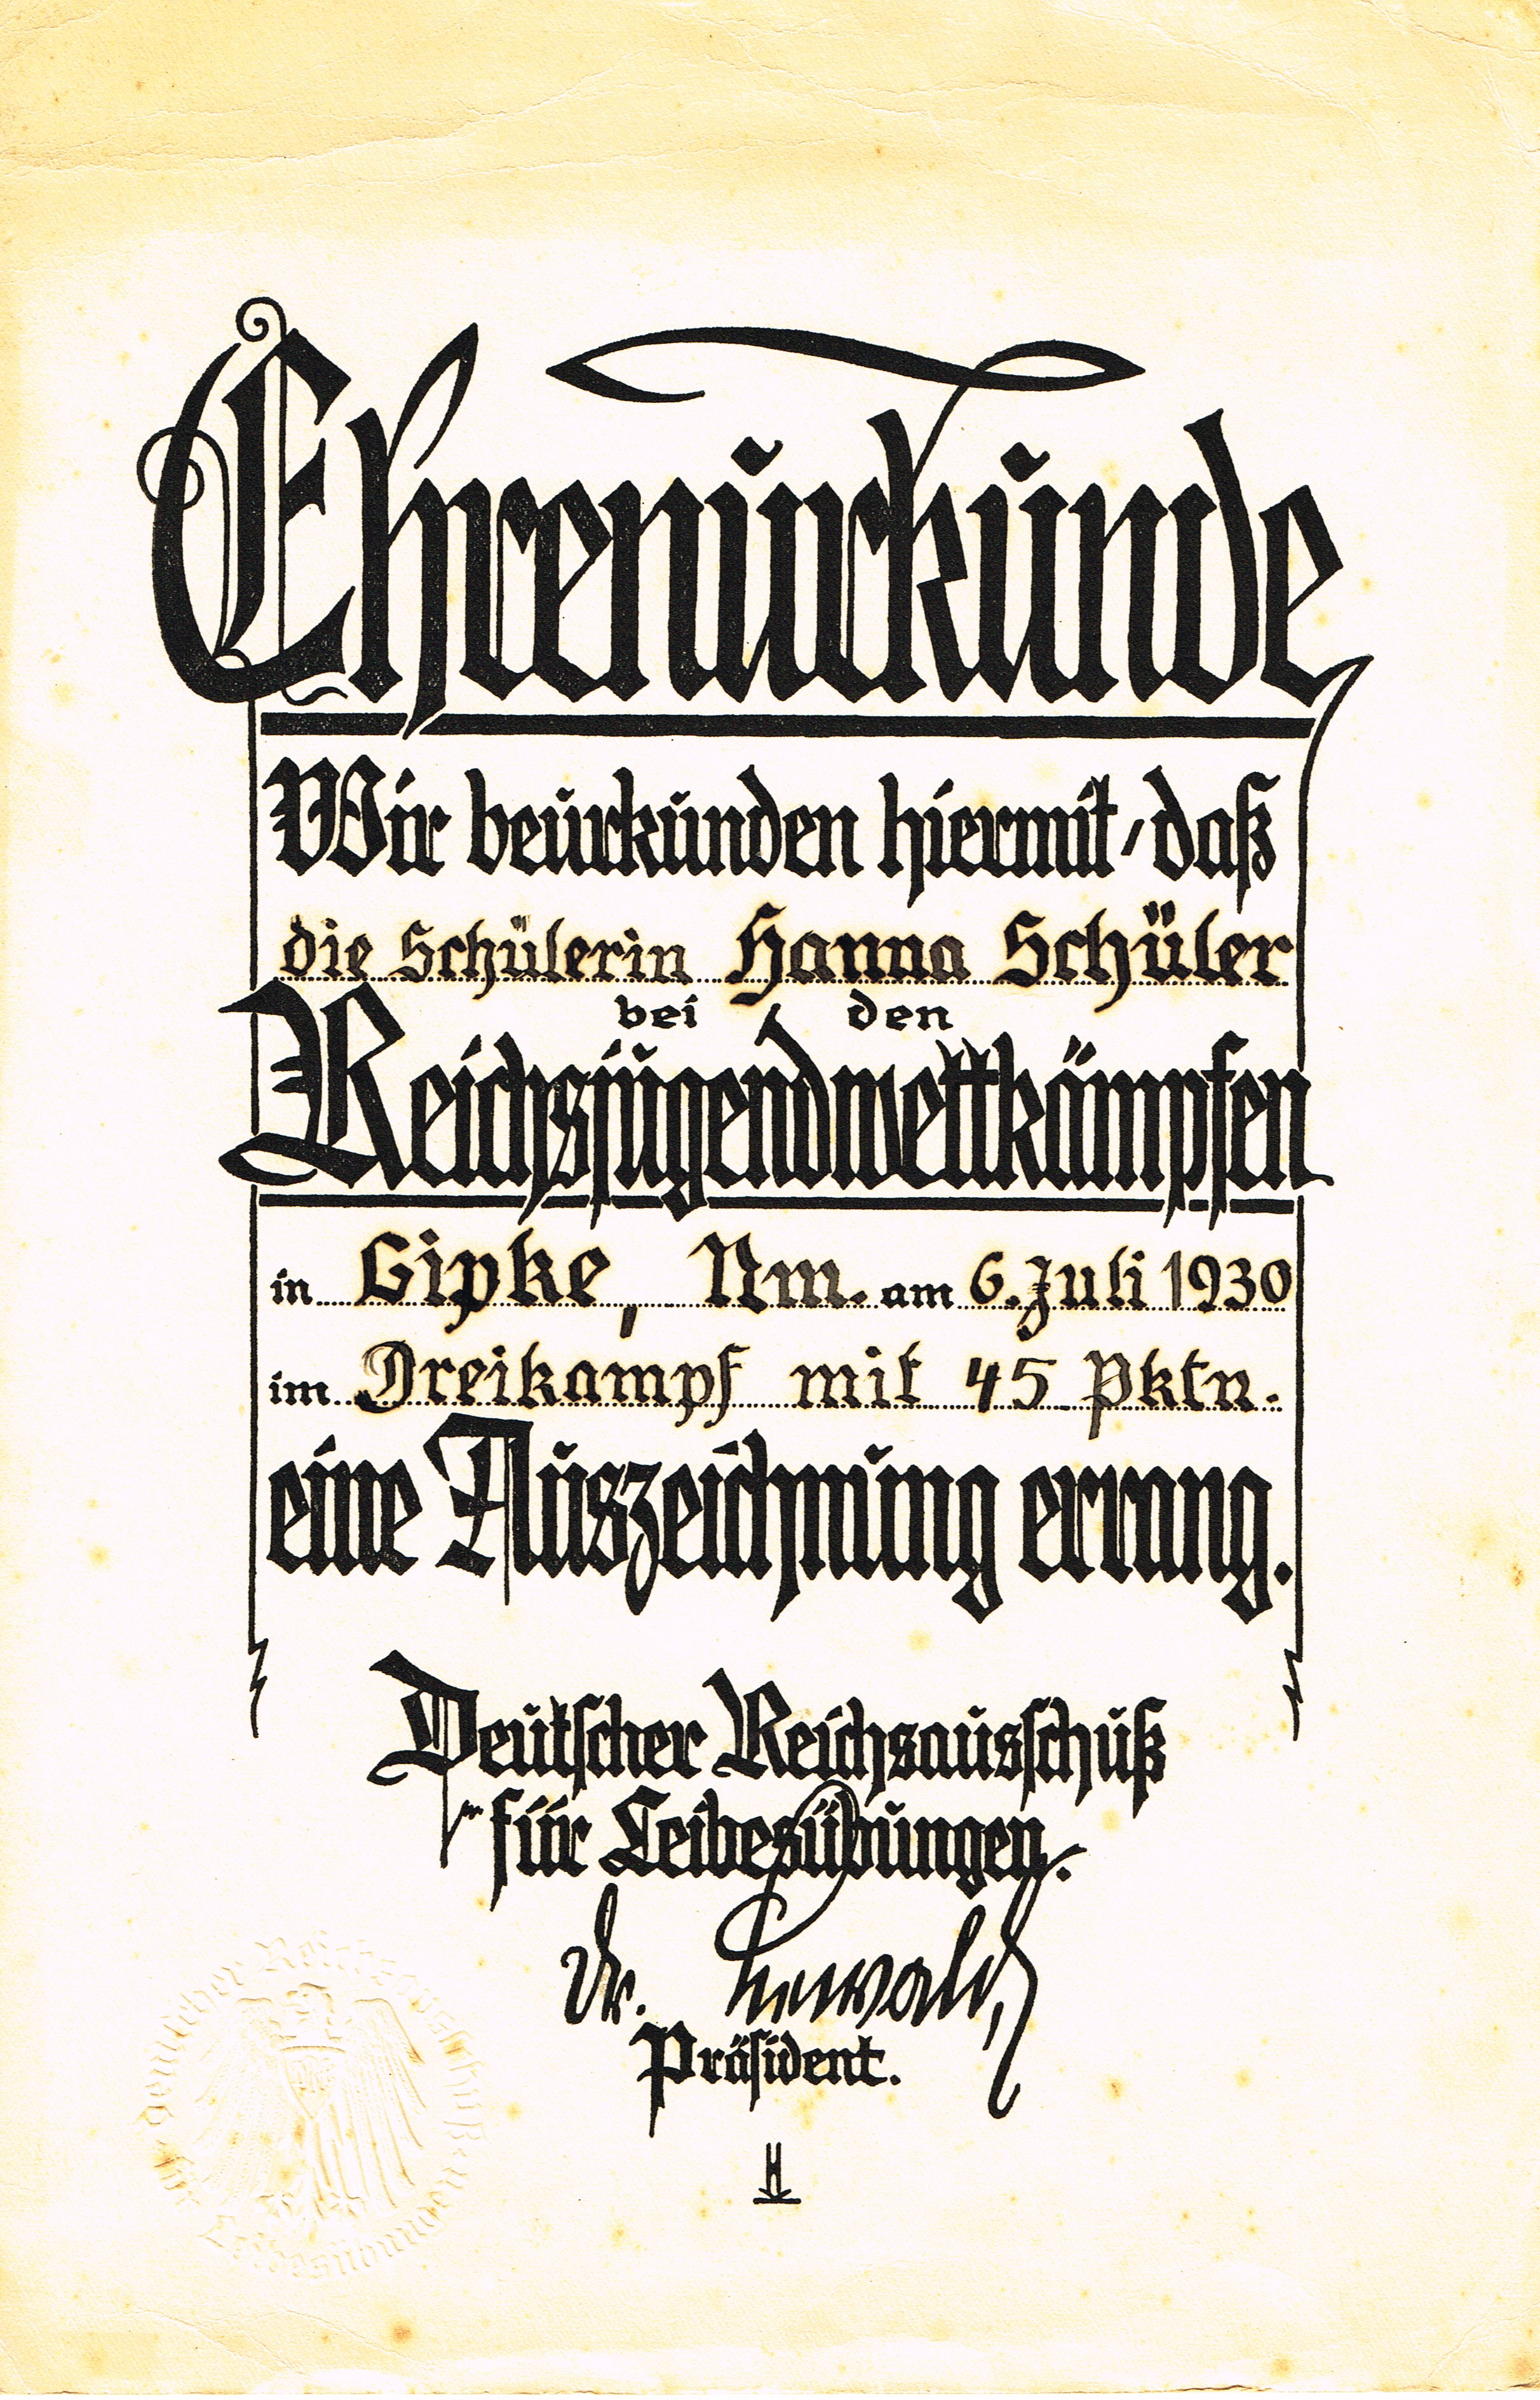 Ehrenurkunde
Wir beurkunden hiermit, daß
die Schülerin Hanna Schüler
bei den
Reichsjugendwettkämpfen
in Lipke, Nm. am 6. Juli 1930
im Dreikampf mit 45 Pktn.
eine Auszeichnung errang.
Deutscher Reichsausschuß
für Leibesübungen.
Dr. Lewald
Präsident.
Deutscher Reichsausschuß für Leibesübungen